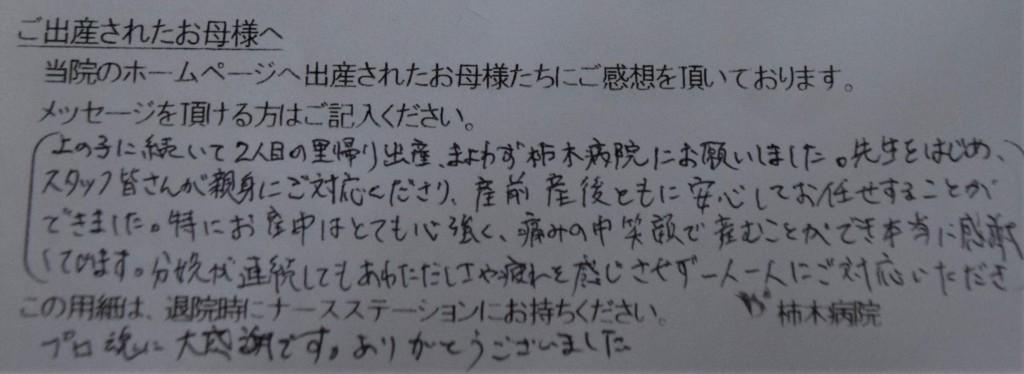 ご出産されたお母様へ
当院のホームページへ出産されたお母様たちにご感想を頂いております。
メッセージを頂ける方はご記入ください。
上の子に続いて2人目の里帰り出産、まよわず柿木病院にお願いしました。先生をはじめ、
スタッフ皆さんが親身にご対応くださり、産前産後ともに安心してお任せすることが
できました。特にお産中はとても心強く、痛みの中笑顔で産むことができ本当に感謝
しています。分娩が連続してもあわただしさや疲れを感じさせず一人一人にご対応いただき
この用紙は、退院時にナースステーションにお持ちください。
柿木病院
プロ魂に大感謝です。ありがとうございました